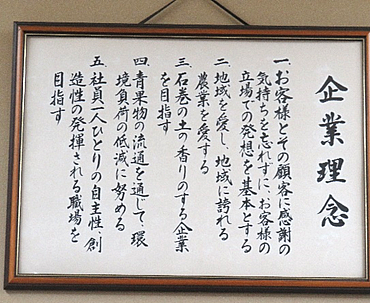 企業理念
一.お客様とその顧客に感謝の
気持ちを忘れずに、お客様の
立場での発想を基本とする
二.地域を愛し、地域に誇れる
農業を愛する
三.石巻の土の香りのする企業
を目指す
四.青果物の流通を通じて、環
境負荷の低減に努める
五.社員一人ひとりの自主性、創
造性の発揮される職場を
目指す